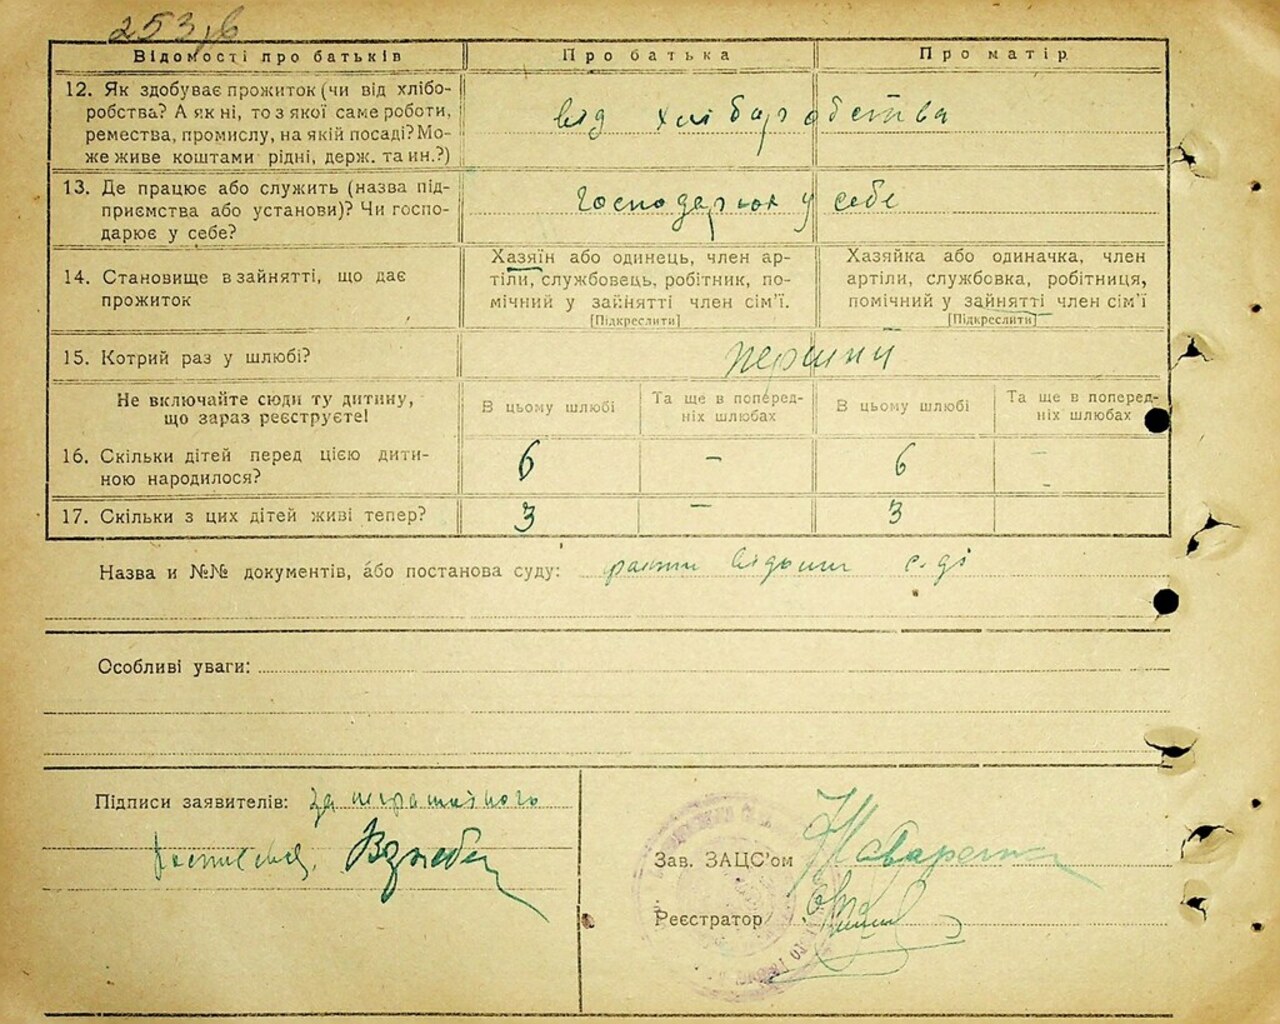 253/в
Відомості про батьків Про батька Про матір
12. Як здобуває прожиток (чи від хлібо-
робства? А як ні, то з якої саме роботи,
ремества, промислу, на якій посаді? Мо-
же живе коштами рідні, держ. та ин.?)
від хлібаробства
13. Де працює або служить (назва під-
приємства або установи)? Чи госпо-
дарює у себе?
господарює у себе
14. Становище в зайнятті, що дає
прожиток
Хазяїн або одинець, член ар-
тіли, службовець, робітник, по-
мічний у зайнятті член сім'ї.
[Підкреслити]
Хазяйка або одиначка, член
артіли, службовка, робітниця,
помічний у зайнятті член сім'ї
[Підкреслити]
15. Котрий раз у шлюбі? перший
Не включайте сюди ту дитину,
що зараз реєструєте!
В цьому шлюбі
Та ще в поперед-
ніх шлюбах
В цьому шлюбі
Та ще в поперед-
ніх шлюбах
16. Скільки дітей перед цією дити-
ною народилося?
6 – 6 –
17. Скільки з цих дітей живі тепер? 3 – 3
Назва и №№ документів, або постанова суду:
Особливі уваги:
Підписи заявителів: за
Зав. ЗАЦС'ом
Реєстратор